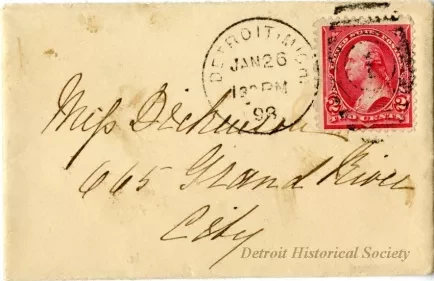 DETROIT, MICH.
JAN 26
130PM
98
UNITED STATES POSTAGE
2 2
TWO CENTS
Miss Dickinson
665 Grand River
City
Detroit Historical Society